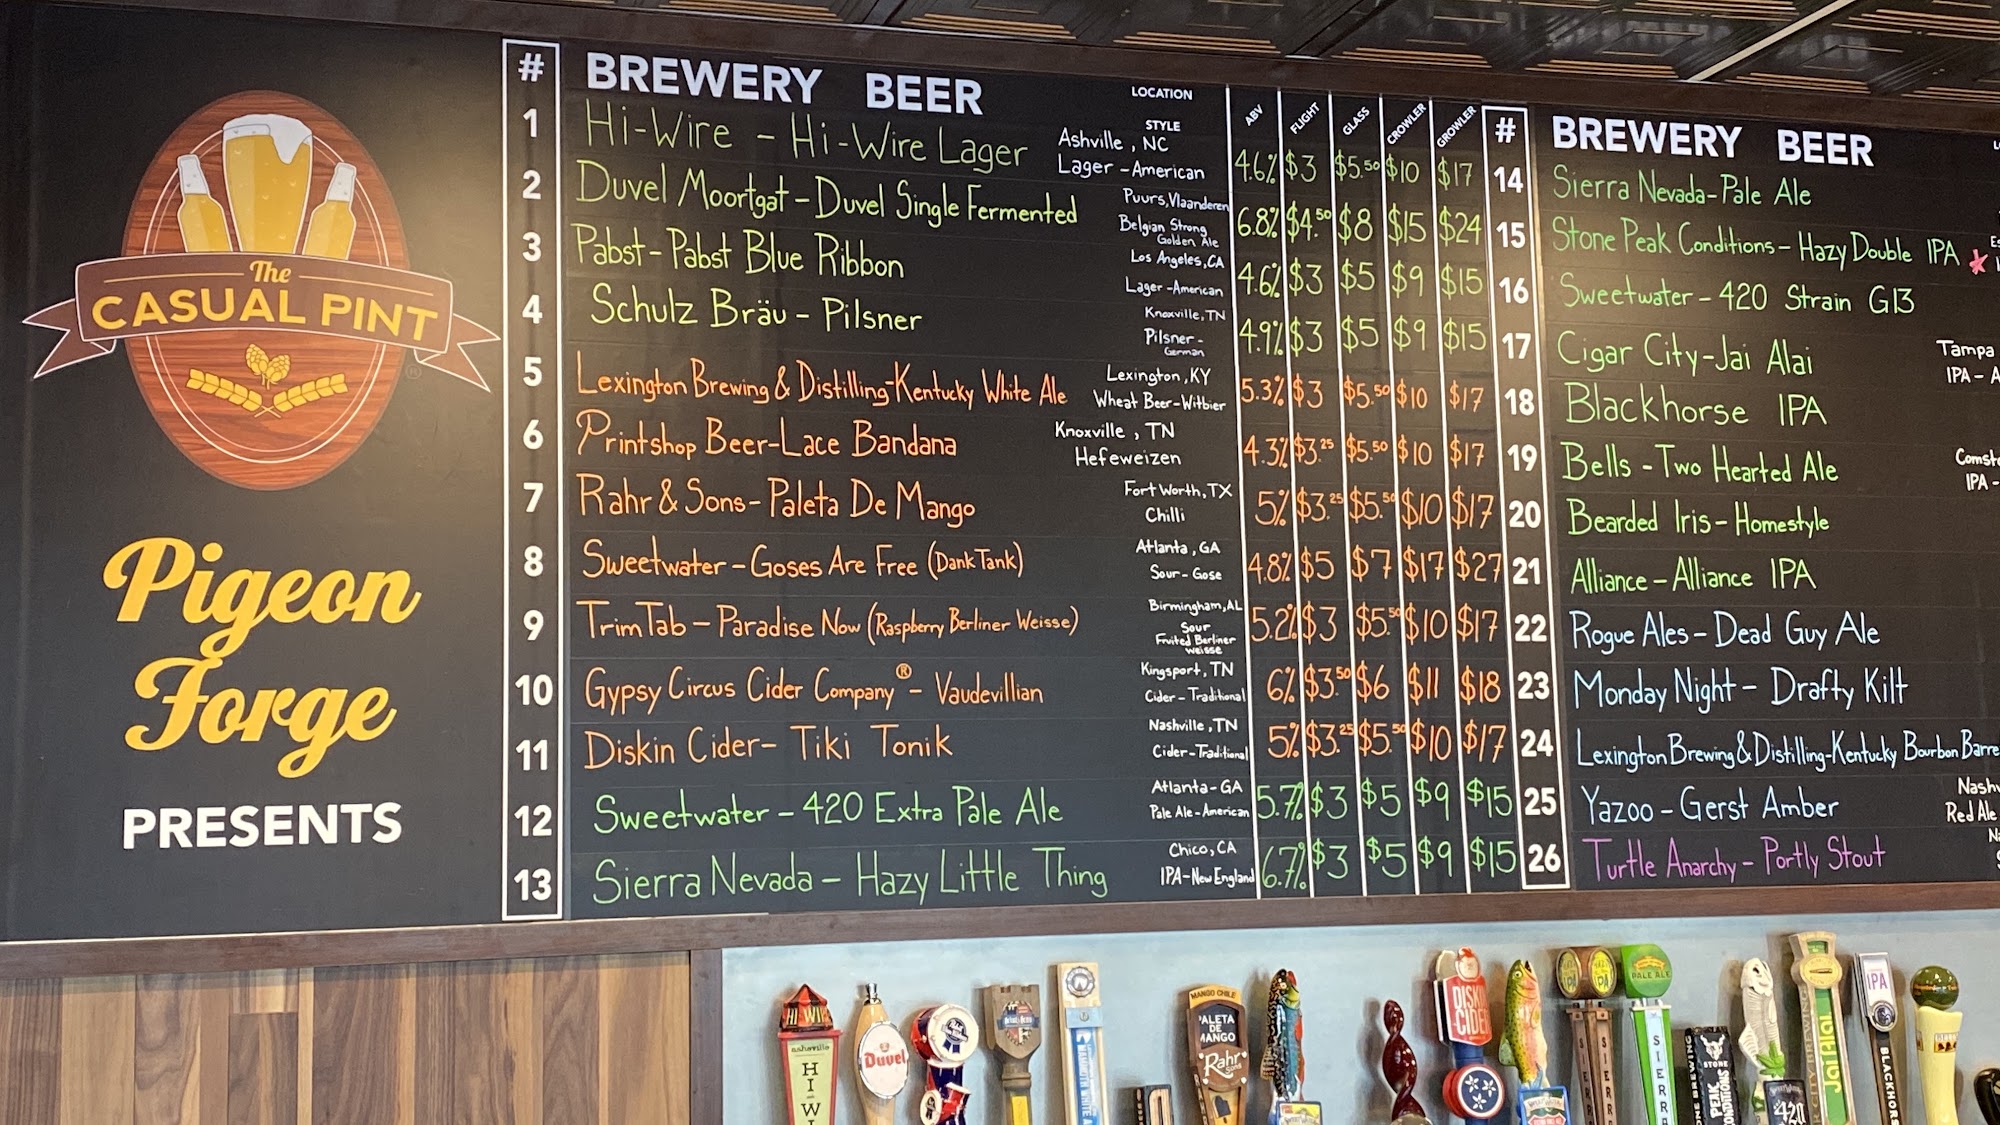 The
CASUAL PINT
®
Pigeon
Forge
PRESENTS
# BREWERY BEER LOCATION STYLE ABV FLIGHT GLASS CROWLER GROWLER
1 Hi-Wire - Hi-Wire Lager Ashville, NC
Lager - American 4.6% $3 $5.50 $10 $17
2 Duvel Moortgat - Duvel Single Fermented Puurs, Vlaanderen
Belgian Strong
Golden Ale 6.8% $4.50 $8 $15 $24
3 Pabst - Pabst Blue Ribbon Los Angeles, CA
Lager - American 4.6% $3 $5 $9 $15
4 Schulz Bräu - Pilsner Knoxville, TN
Pilsner -
German 4.9% $3 $5 $9 $15
5 Lexington Brewing & Distilling-Kentucky White Ale Lexington, KY
Wheat Beer-Witbier 5.3% $3 $5.50 $10 $17
6 Printshop Beer-Lace Bandana Knoxville, TN
Hefeweizen 4.3% $3.25 $5.50 $10 $17
7 Rahr & Sons - Paleta De Mango Fort Worth, TX
Chilli 5% $3.25 $5.50 $10 $17
8 Sweetwater - Goses Are Free (Dank Tank) Atlanta, GA
Sour - Gose 4.8% $5 $7 $17 $27
9 TrimTab - Paradise Now (Raspberry Berliner Weisse) Birmingham, AL
Sour
Fruited Berliner
weisse 5.2% $3 $5.50 $10 $17
10 Gypsy Circus Cider Company® - Vaudevillian Kingsport, TN
Cider - Traditional 6% $3.50 $6 $11 $18
11 Diskin Cider - Tiki Tonik Nashville, TN
Cider - Traditional 5% $3.25 $5.50 $10 $17
12 Sweetwater - 420 Extra Pale Ale Atlanta - GA
Pale Ale - American 5.7% $3 $5 $9 $15
13 Sierra Nevada - Hazy Little Thing Chico, CA
IPA - New England 6.7% $3 $5 $9 $15
# BREWERY BEER
14 Sierra Nevada-Pale Ale
15 Stone Peak Conditions - Hazy Double IPA
16 Sweetwater - 420 Strain G13
17 Cigar City-Jai Alai Tampa
IPA - A
18 Blackhorse IPA
19 Bells - Two Hearted Ale Comst
IPA -
20 Bearded Iris - Homestyle
21 Alliance - Alliance IPA
22 Rogue Ales - Dead Guy Ale
23 Monday Night - Drafty Kilt
24 Lexington Brewing & Distilling-Kentucky Bourbon Barre
25 Yazoo - Gerst Amber Nashv
Red Ale
26 Turtle Anarchy - Portly Stout
HI WI
asheville
HI
WI
Duvel
MAMMOTH WHITE
MANGO CHILE
PALETA
DE
MANGO
Rahr
& Sons
DISKIN
CIDER
SIERRA
PALE ALE
SIERRA
STONE
PEAK
CONDITIONS
420
Jai Alai
IPA
BLACKHORS